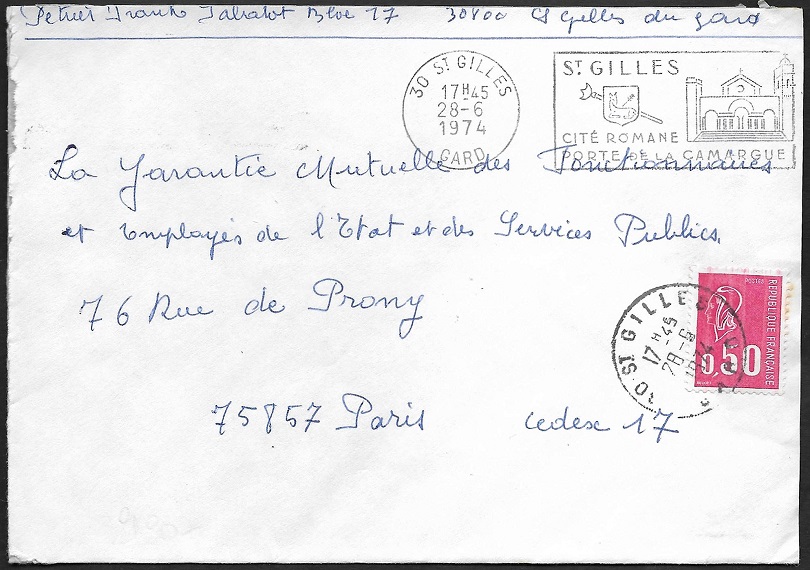 30800 St Gilles du Gard
30 ST GILLES
17H45
28-6
1974
GARD
ST GILLES
CITÉ ROMANE
PORTE DE LA CAMARGUE
La Garantie Mutuelle des Fonctionnaires
et Employés de l'Etat et des Services Publics.
76 Rue de Prony
75857 Paris cedex 17
POSTES
REPUBLIQUE FRANÇAISE
0,50
30 ST GILLES
17H45
28-6
1974
GARD